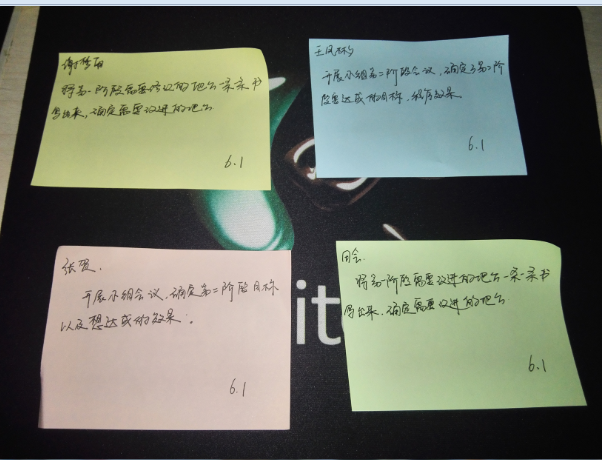 将第一阶段需要改进的地方一条条书
写出来,确定需要改进的地方
6.1
王凤
开展小组第二阶段会议,确定了第二阶
段要达成的目标,
效果。
6.1
张贺.
开展小组会议,确定第二阶段目标
以及想达成的效果。
6.1
田会.
将第一阶段需要改进的地方一条一条书
写出来,确定需要改进的地方
6.1
ite